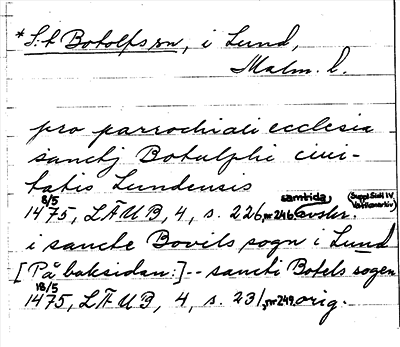 * S:t Botolfs sn, i Lund,
Malm. l.
pro parrochiali ecclesia
sanctj Botulphi civi-
tatis Lundensis
8/5 samtida (Suppl Sixti IV Vatikanarkiv)
1475, LÄUB, 4, s. 226, nr 246. avskr.
i sancte Bovils sogn i Lund
[På baksidan:] -- sancti Botels sogen
18/5
1475, LÄUB, 4, s. 231, nr 249. orig.